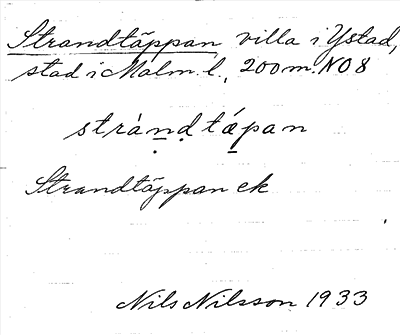 Strandtäppan villa i Ystad,
stad i Malm. l., 200 m. NO 8
strànd tǽpan
Strandtäppan ek
Nils Nilsson 1933